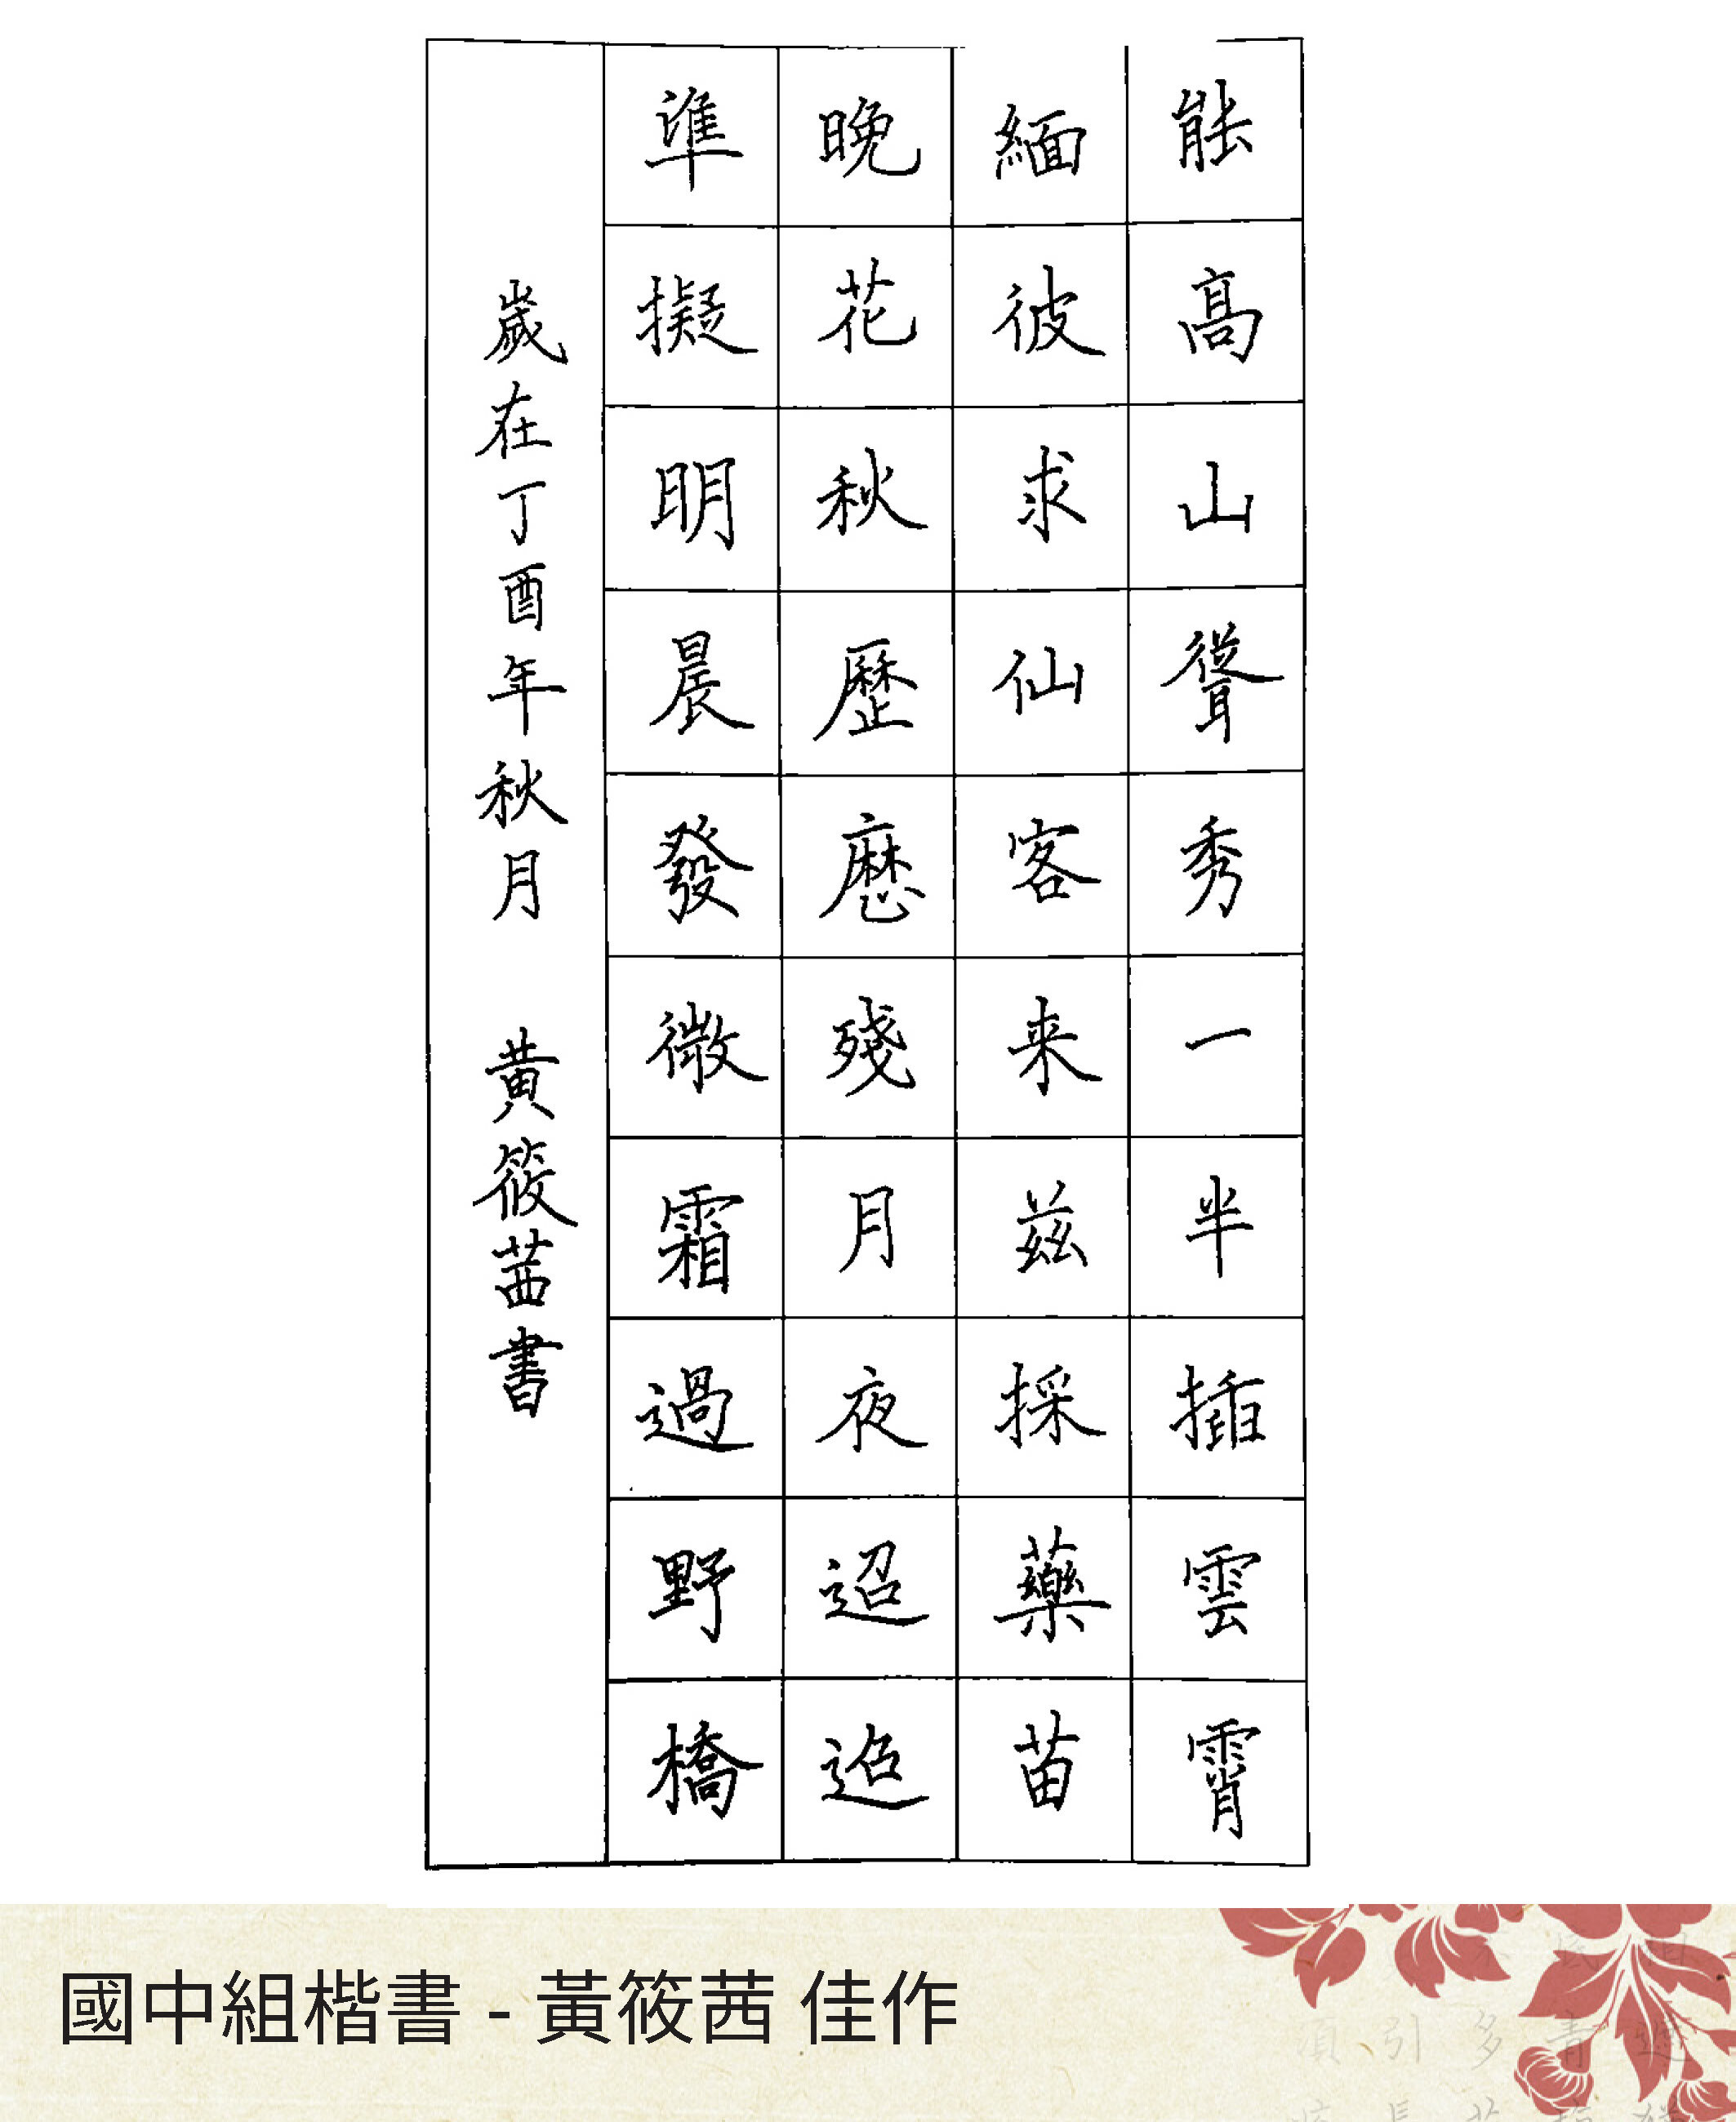 能高山聳秀一半插雲霄
緬彼求仙客来茲採藥苗
晚花秋歷歷殘月夜迢迢
準擬明晨發微霜過野橋
歲在丁酉年秋月 黃筱茜書
國中組楷書 - 黃筱茜 佳作